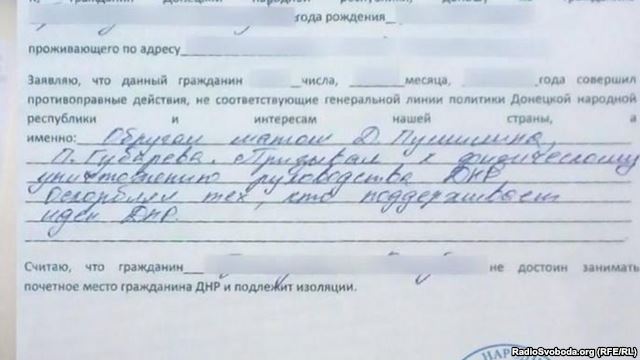 гражданин Донецкой народной республики,
года рождения
проживающего по адресу
Заявляю, что данный гражданин числа, месяца, года совершил
противоправные действия, не соответствующие генеральной линии политики Донецкой народной
республики и интересам нашей страны, а
именно: Обругал матом Д. Пушилина,
П. Губарева. Призывал к физическому
уничтожению руководства ДНР
Оскорблял тех, кто поддерживает
идеи ДНР.
Считаю, что гражданин не достоин занимать
почетное место гражданина ДНР и подлежит изоляции.
RadioSvoboda.org (RFE/RL)